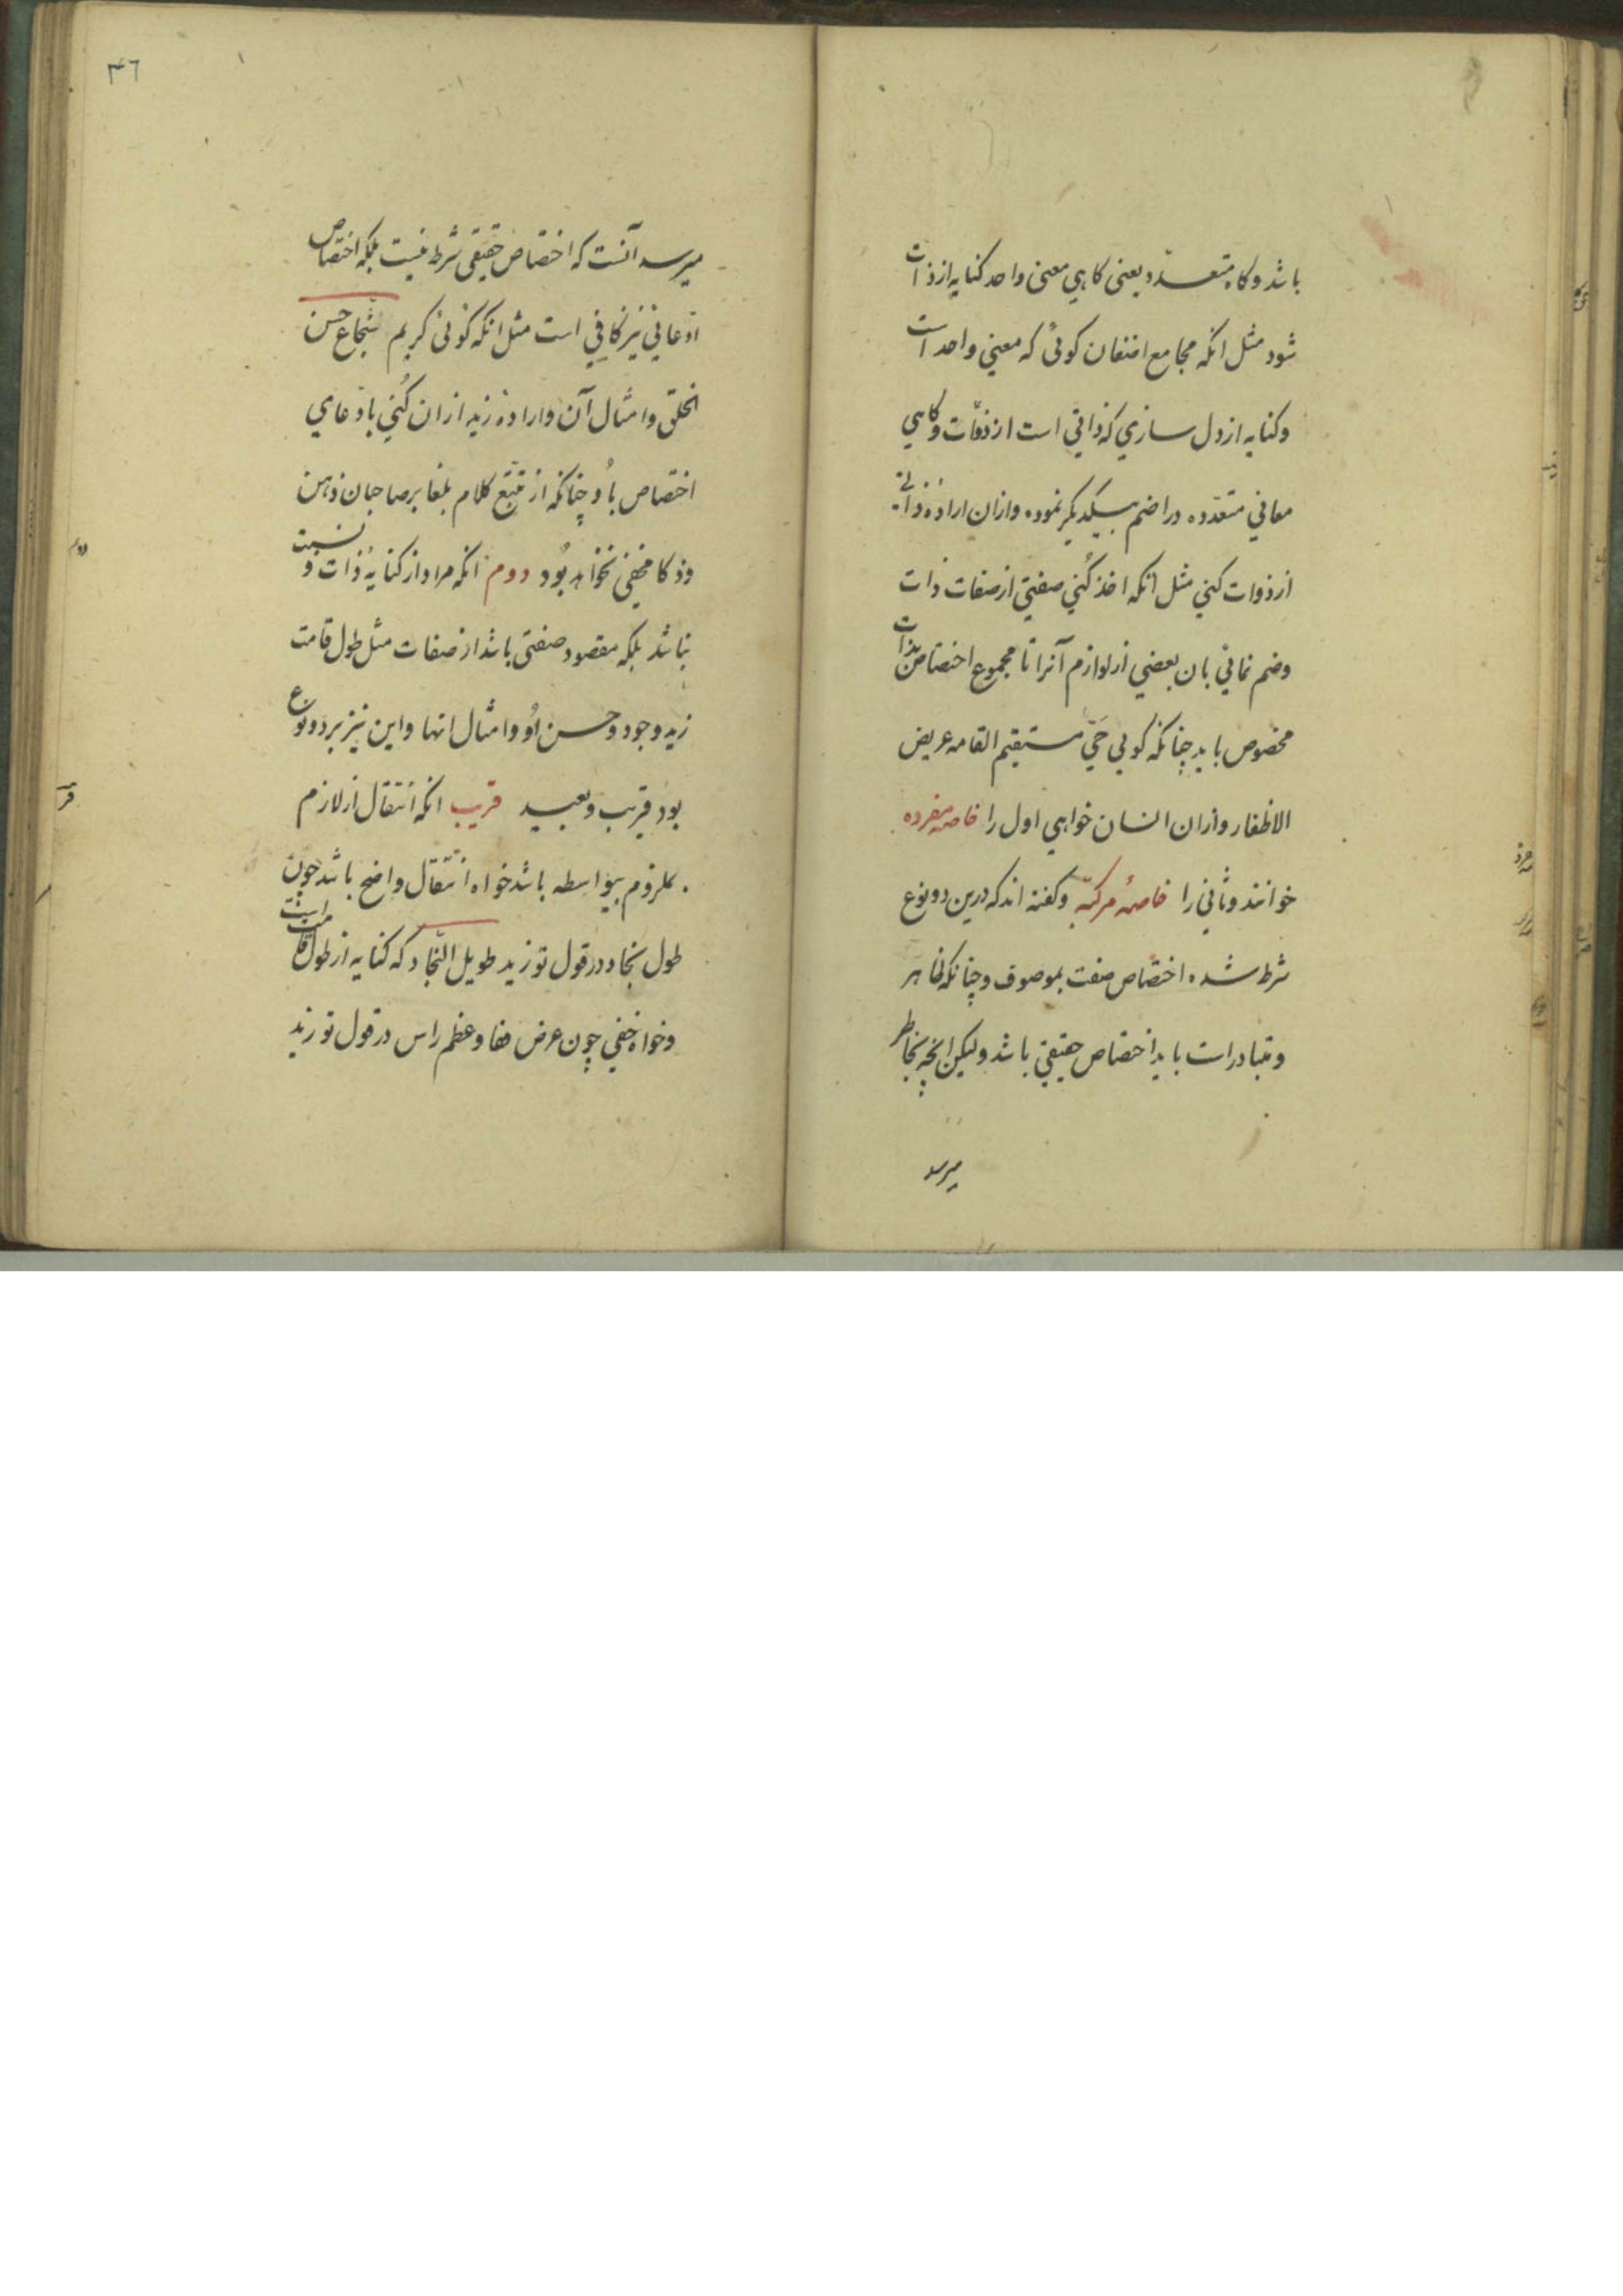 باشد و کاه متعدد یعنی کاهی معنی واحد کنایه از ذات
شود مثل انکه مجامع اضغان کوئی که معنی واحد است
و کنایه از دل سازی که ذاتی است از ذوات و کاهی
معانی متعدده را ضم بیکدیکر نموده و ازان ارادهٔ ذاتی
از ذوات کنی مثل انکه اخذ کنی صفتی از صفات ذات
و ضم نمائی بان بعضی از لوازم آنرا تا مجموع اختصاص بذات
مخصوص یابد چنانکه کویی حَیّ مستقیم القامه عریض
الاظفار و ازان انسان خواهی اول را خاصه مفرده
خوانند و ثانی را خاصهٔ مرکبه و کفته اند که درین دو نوع
شرط شده اختصاص صفت بموصوف و چنانکه ظاهر
و متبادر است باید اختصاص حقیقی باشد ولیکن انچه بخاطر
میرسد
۴۶
میرسد آنست که اختصاص حقیقی شرط نیست بلکه اختصاص
ادّعائی نیز کافی است مثل انکه کوئی کریم شجاع حسن
الخلق و امثال آن و ارادهٔ زید ازان کنی بادّعای
اختصاص باُو چنانکه از تتبّع کلام بلغا بر صاحبان ذهن
و ذکا مخفی نخواهد بُود دوم انکه مراد از کنایه ذات و نسبت
نباشد بلکه مقصود صفتی باشد از صفات مثل طول قامت
زید و جود و حسن اُو و امثال انها و این نیز بر دو نوع
بود قریب و بعید قریب انکه انتقال از لازم
بملزوم بیواسطه باشد خواه انتقال واضح باشد چون
طول نجاد در قول تو زید طویل النّجاد که کنایه از طول قامت است
و خواه خفی چون عرض قفا و عظم راس در قول تو زید
دوم